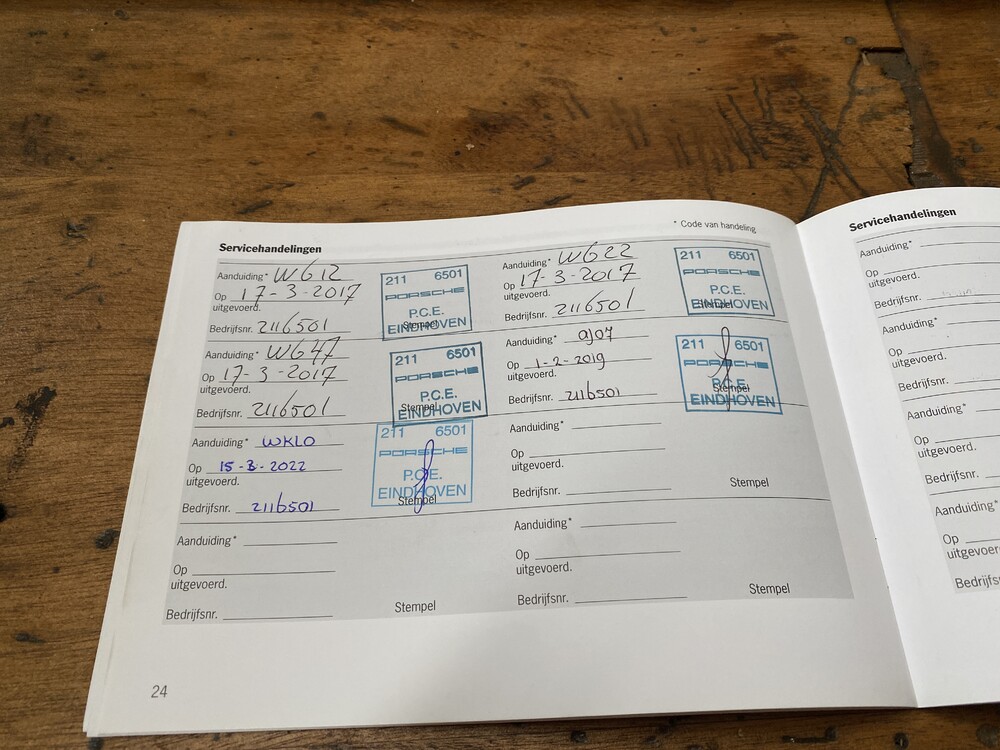 Servicehandelingen
* Code van handeling
Aanduiding* WG12
Op 17-3-2017
uitgevoerd.
Bedrijfsnr. 2116501
Stempel
211 6501
PORSCHE
P.C.E.
EINDHOVEN
Aanduiding* WG22
Op 17-3-2017
uitgevoerd.
Bedrijfsnr. 2116501
Stempel
211 6501
PORSCHE
P.C.E.
EINDHOVEN
Aanduiding* WG47
Op 17-3-2017
uitgevoerd.
Bedrijfsnr. 2116501
Stempel
211 6501
PORSCHE
P.C.E.
EINDHOVEN
Aanduiding* aj07
Op 1-2-2019
uitgevoerd.
Bedrijfsnr. 2116501
Stempel
211 6501
PORSCHE
P.C.E.
EINDHOVEN
Aanduiding* WKLO
Op 15-3-2022
uitgevoerd.
Bedrijfsnr. 2116501
Stempel
211 6501
PORSCHE
P.C.E.
EINDHOVEN
Aanduiding*
Op
uitgevoerd.
Bedrijfsnr.
Stempel
Aanduiding*
Op
uitgevoerd.
Bedrijfsnr.
Stempel
Aanduiding*
Op
uitgevoerd.
Bedrijfsnr.
Stempel
24
Servicehandelingen
Aanduiding*
Op
uitgevoerd.
Bedrijfsnr.
Aanduiding*
Op
uitgevoerd.
Bedrijfsnr.
Aanduiding*
Op
uitgevoerd.
Bedrijfsnr.
Aanduiding*
Op
uitgevoer
Bedrijfs